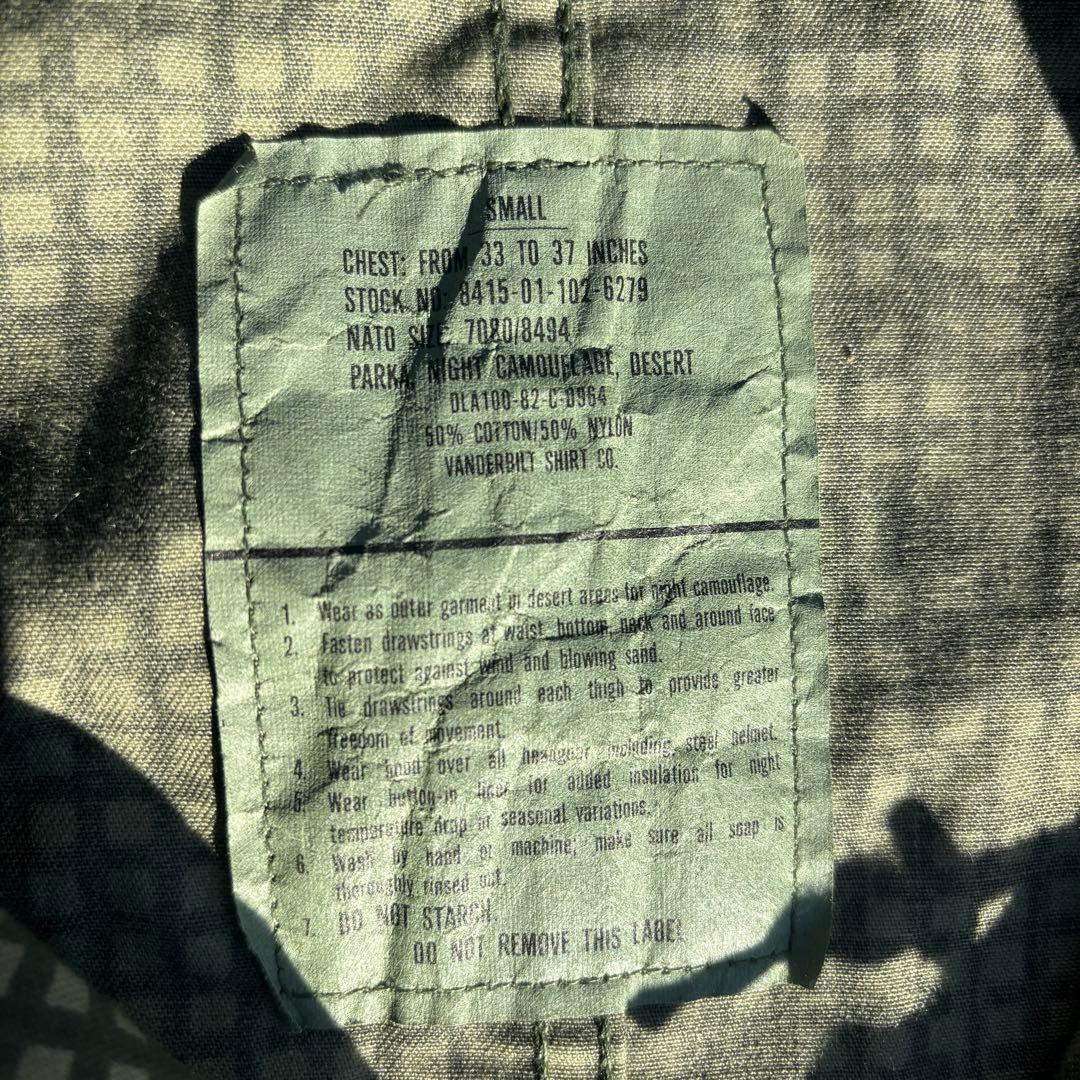 SMALL
CHEST: FROM 33 TO 37 INCHES
STOCK NO: 8415-01-102-6279
NATO SIZE 7080/8494
PARKA, NIGHT CAMOUFLAGE, DESERT
DLA100-82-C-0564
50% COTTON/50% NYLON
VANDERBILT SHIRT CO.
1. Wear as outer garment in desert areas for night camouflage.
2. Fasten drawstrings at waist, bottom, neck and around face
to protect against wind and blowing sand.
3. Tie drawstrings around each thigh to provide greater
freedom of movement.
4. Wear hood over all headgear including steel helmet.
5. Wear button-in liner for added insulation for night
temperature drop or seasonal variations.
6. Wash by hand or machine; make sure all soap is
thoroughly rinsed out.
7. DO NOT STARCH.
DO NOT REMOVE THIS LABEL